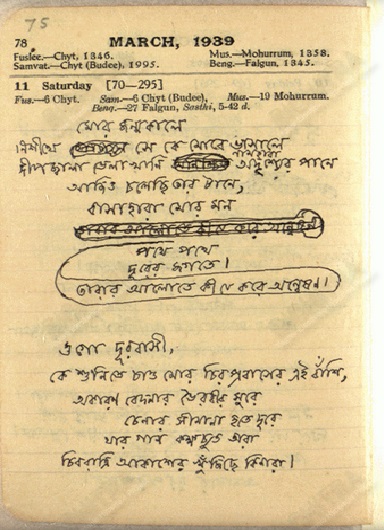 75
78
MARCH, 1939
Fuslee.—Chyt, 1346.
Mus.—Mohurrum, 1358.
Samvat.—Chyt (Budee), 1995.
Beng.—Falgun, 1345.
11 Saturday [70—295]
Fus.—6 Chyt. Sam.—6 Chyt (Budee), Mus.—19 Mohurrum.
Beng.—27 Falgun, Sasthi, 5-42 d.
মোর জন্মকালে
নিশীথে সে কে মোরে ভাসালে
দীপজ্বালা ভেলাখানি অদৃশ্যের পানে
আজিও চলেছি তার টানে,
বাসাহারা মোর মন
তারার আলোতে কারে করে অন্বেষণ
পথে পথে
দূরের জগতে।
ওগো দূরবাসী,
কে শুনিতে চাও মোর চিরপ্রবাসের এই বাঁশি,
অকারণ বেদনার ভৈরবীর সুরে
চেনার সীমানা হতে দূরে
যার গান কক্ষচ্যুত তারা
চিররাত্রি আকাশেরে খুঁজিছে কিনারা।